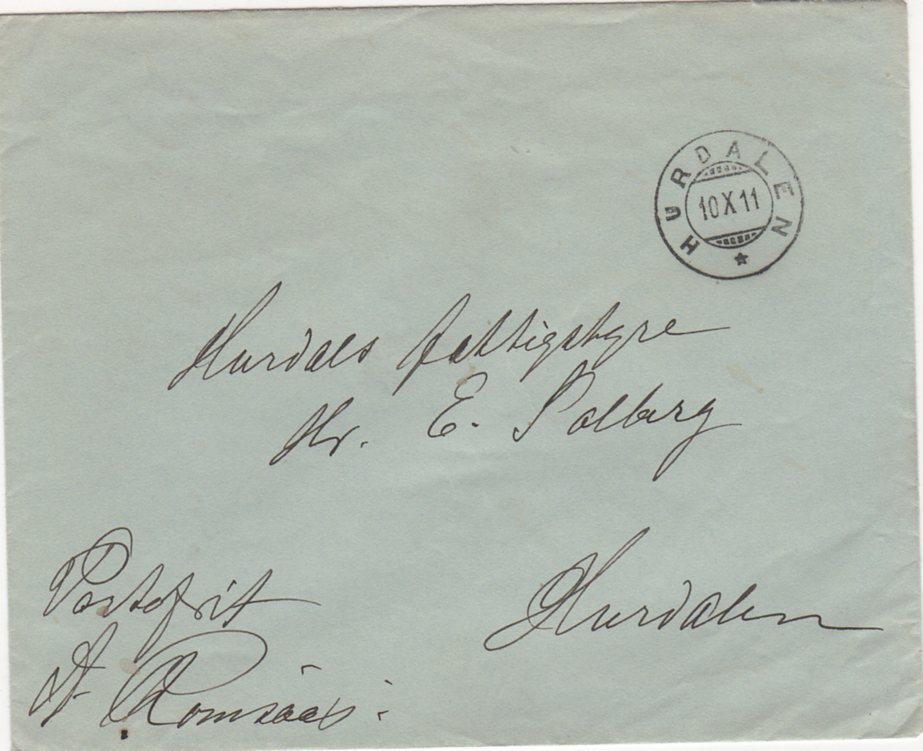 HURDALEN
10 X 11
Hurdals Fattigstyre
Hr. E. Solberg
Hurdalen
Postofrit
A.